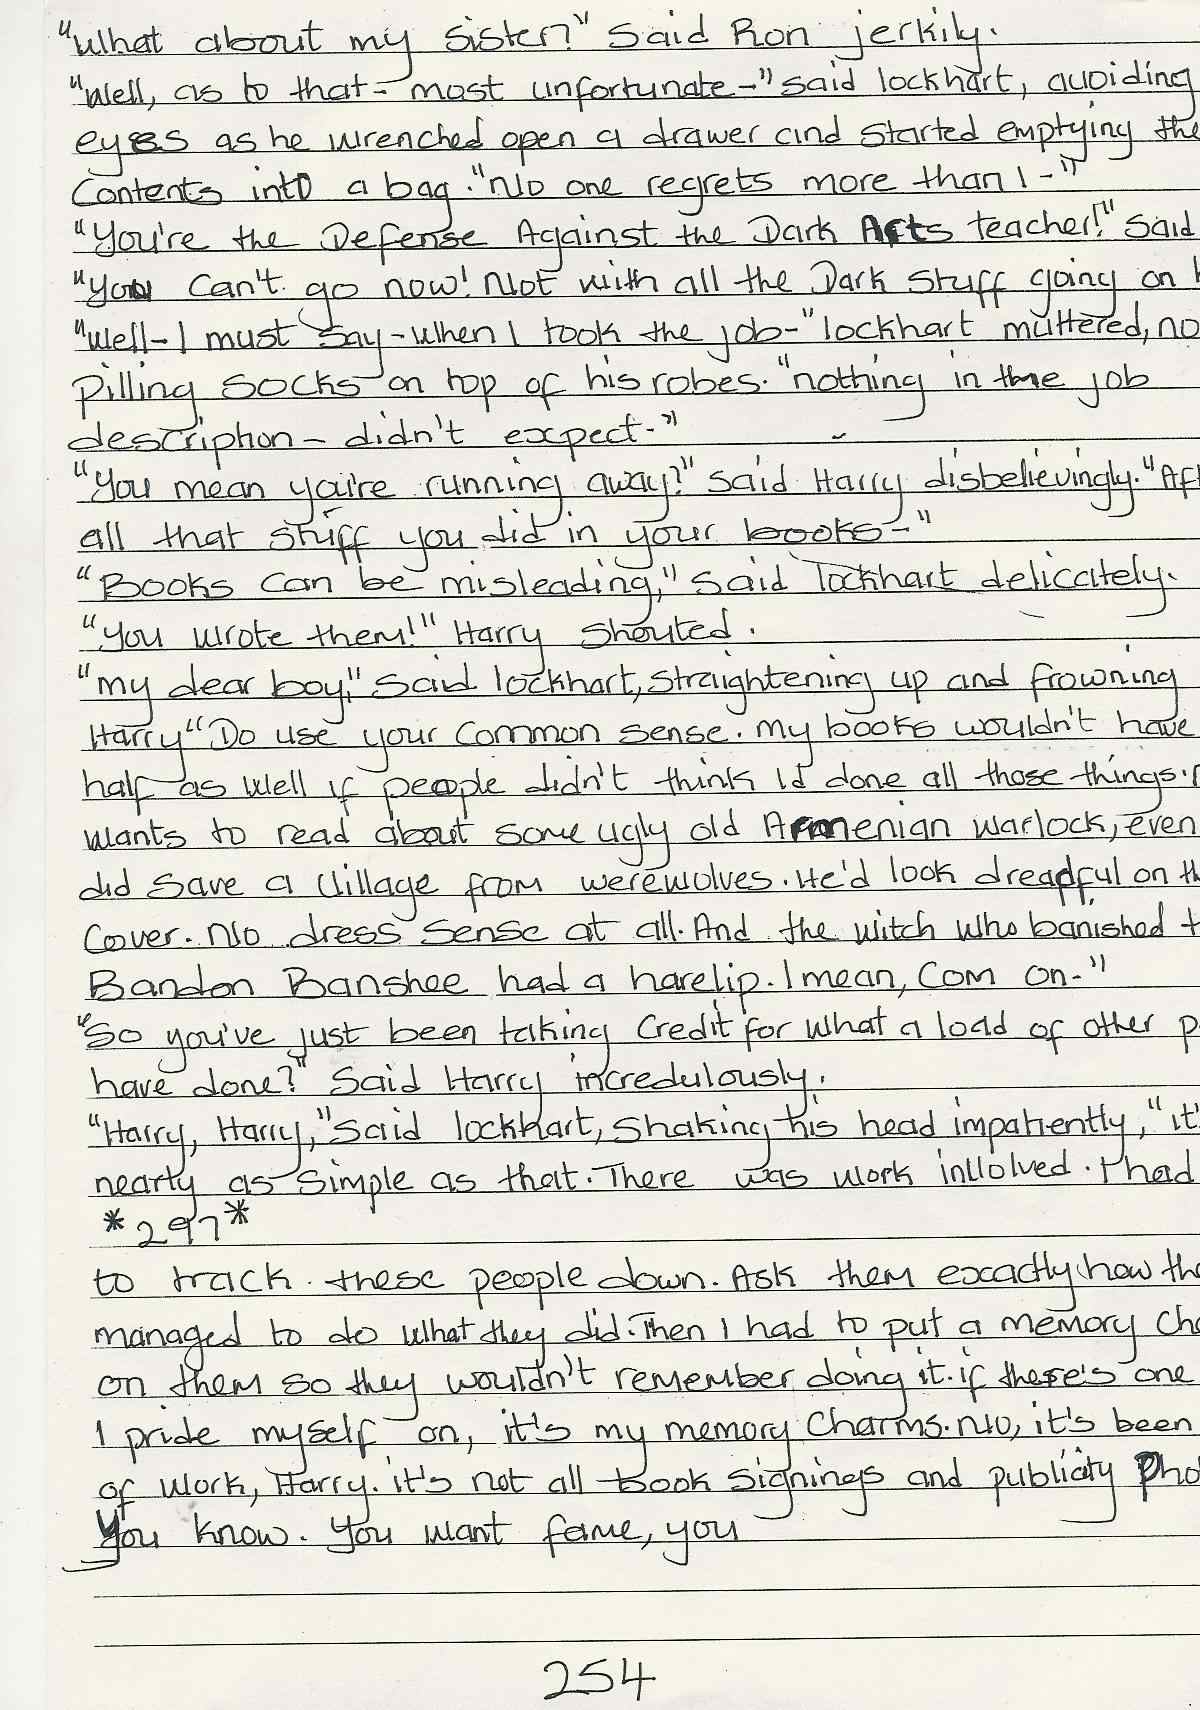 "What about my sister?" Said Ron jerkily.
"Well, as to that - most unfortunate -" said lockhart, avoiding
eyes as he wrenched open a drawer and started emptying the
Contents into a bag. "No one regrets more than I -"
"You're the Defense Against the Dark Arts teacher!" Said
"you can't go now! Not with all the Dark Stuff going on
"Well - I must say - when I took the job -" lockhart muttered, no
Pilling socks on top of his robes. "nothing in the job
description - didn't expect -"
"You mean you're running away?" said Harry disbelievingly. "Aft
all that stuff you did in your books -"
"Books can be misleading," said lockhart delicately.
"You wrote them!" Harry shouted.
"my dear boy," Said lockhart, straightening up and frowning
Harry "Do use your common sense. My books wouldn't have
half as well if people didn't think I'd done all those things.
wants to read about some ugly old Armenian warlock, even
did save a village from werewolves. He'd look dreadful on th
Cover. No dress sense at all. And the witch who banished t
Bandon Banshee had a harelip. I mean, Com on -"
"So you've just been taking credit for what a load of other p
have done?" Said Harry incredulously.
"Harry, Harry," said lockhart, shaking his head impatiently, "it'
nearly as simple as that. There was work involved. I had
*297*
to track these people down. Ask them exactly how the
managed to do what they did. Then I had to put a memory cha
on them so they wouldn't remember doing it. if there's one
I pride myself on, it's my memory Charms. No, it's been
of work, Harry. it's not all book signings and publicity Pho
You know. You want fame, you
254